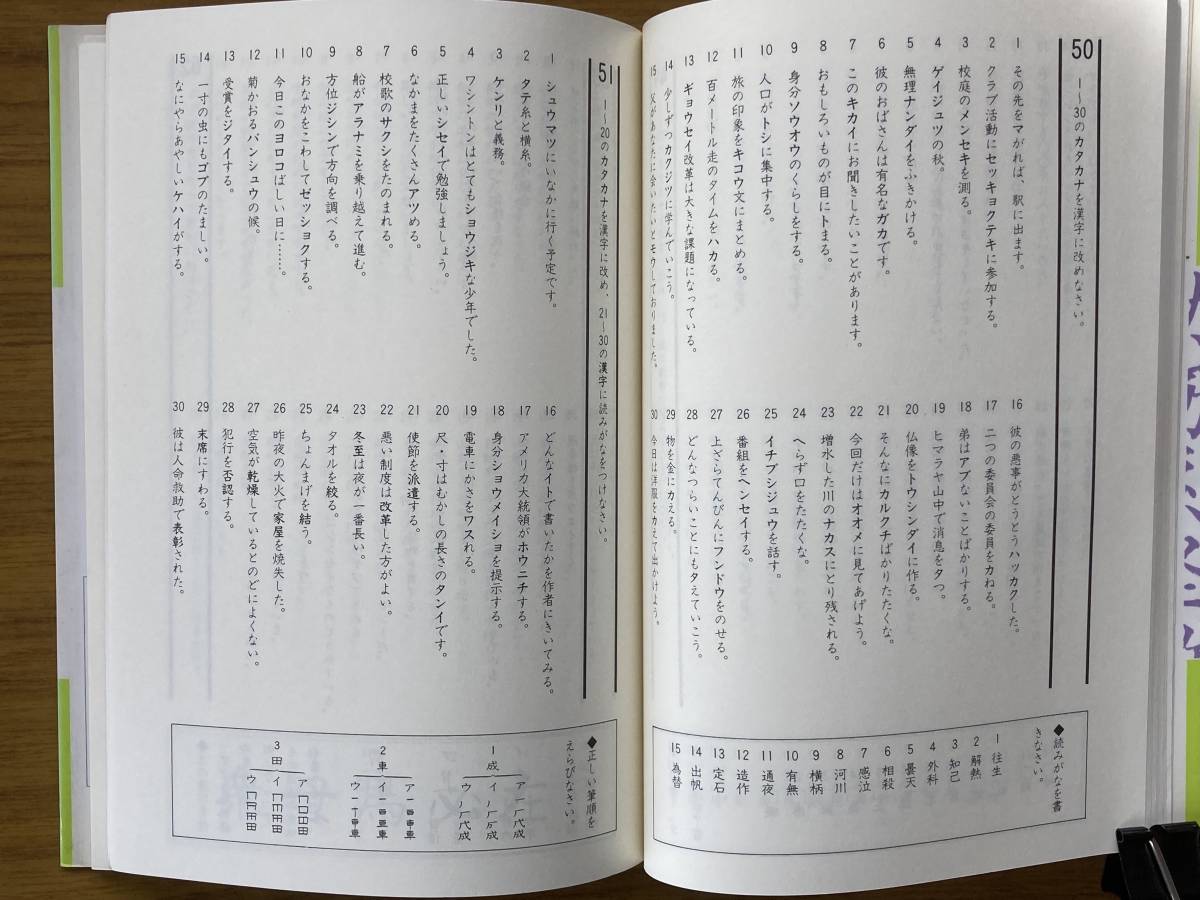 50
1～30のカタカナを漢字に改めなさい。
1 その先をマがれば、駅に出ます。
2 クラブ活動にセッキョクテキに参加する。
3 校庭のメンセキを測る。
4 ゲイジュツの秋。
5 無理ナンダイをふきかける。
6 彼のおばさんは有名なガカです。
7 このキカイにお聞きしたいことがあります。
8 おもしろいものが目にトまる。
9 身分ソウオウのくらしをする。
10 人口がトシに集中する。
11 旅の印象をキコウ文にまとめる。
12 百メートル走のタイムをハカる。
13 ギョウセイ改革は大きな課題になっている。
14 少しずつカクジツに学んでいこう。
15 父があなたに会いたいとモウしておりました。
16 彼の悪事がとうとうハッカクした。
17 二つの委員会の委員をカねる。
18 弟はアブないことばかりする。
19 ヒマラヤ山中で消息をタつ。
20 仏像をトウシンダイに作る。
21 そんなにカルクチばかりたたくな。
22 今回だけはオオメに見てあげよう。
23 増水した川のナカスにとり残される。
24 へらず口をたたくな。
25 イチブシジュウを話す。
26 番組をヘンセイする。
27 上ざらてんびんにフンドウをのせる。
28 どんなつらいことにもタえていこう。
29 物を金にカえる。
30 今日は洋服をカえて出かけよう。
◆読みがなを書きなさい。
1 往生
2 解熱
3 知己
4 外科
5 曇天
6 相殺
7 感泣
8 河川
9 横柄
10 有無
11 通夜
12 造作
13 定石
14 出帆
15 為替
51
1～20のカタカナを漢字に改め、21～30の漢字に読みがなをつけなさい。
1 シュウマツにいなかに行く予定です。
2 タテ糸と横糸。
3 ケンリと義務。
4 ワシントンはとてもショウジキな少年でした。
5 正しいシセイで勉強しましょう。
6 なかまをたくさんアツめる。
7 校歌のサクシをたのまれる。
8 船がアラナミを乗り越えて進む。
9 方位ジシンで方向を調べる。
10 おなかをこわしてゼッショクする。
11 今日このヨロコばしい日に……。
12 菊かおるバンシュウの候。
13 受賞をジタイする。
14 一寸の虫にもゴブのたましい。
15 なにやらあやしいケハイがする。
16 どんなイトで書いたかを作者にきいてみる。
17 アメリカ大統領がホウニチする。
18 身分ショウメイショを提示する。
19 電車にかさをワスれる。
20 尺・寸はむかしの長さのタンイです。
21 使節を派遣する。
22 悪い制度は改革した方がよい。
23 冬至は夜が一番長い。
24 タオルを絞る。
25 ちょんまげを結う。
26 昨夜の大火で家屋を焼失した。
27 空気が乾燥しているとのどによくない。
28 犯行を否認する。
29 末席にすわる。
30 彼は人命救助で表彰された。
◆正しい筆順をえらびなさい。
1 成
ア
イ
ウ
2 車
ア
イ
ウ
3 田
ア
イ
ウ